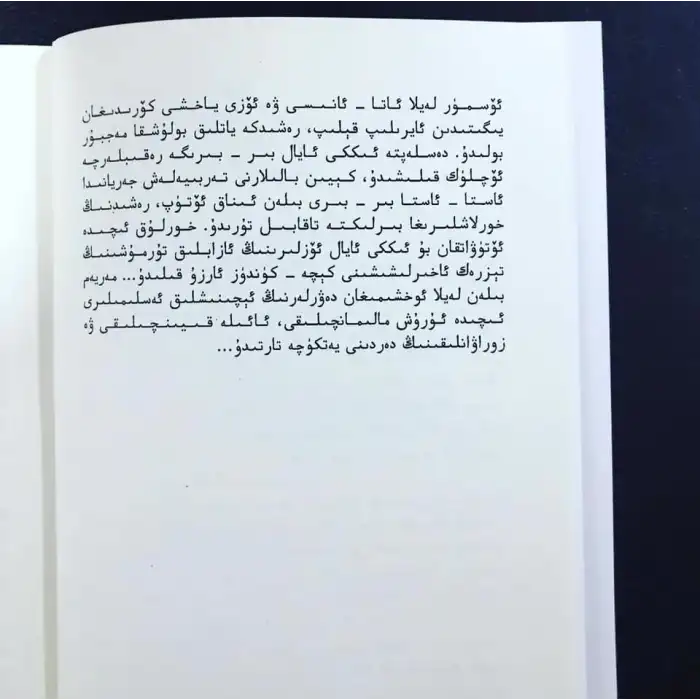 ئۆسمۈر لەيلا ئاتا – ئانىسى ۋە ئۆزى ياخشى كۆرىدىغان
يىگىتىدىن ئايرىلىپ قېلىپ، رەشىدكە ياتلىق بولۇشقا مەجبۇر
بولىدۇ. دەسلەپتە ئىككى ئايال بىر – بىرىگە رەقىبلەرچە
ئۆچلۈك قىلىشىدۇ، كېيىن بالىلارنى تەربىيەلەش جەريانىدا
ئاستا – ئاستا بىر – بىرى بىلەن ئىناق ئۆتۈپ، رەشىدنىڭ
خورلاشلىرىغا بىرلىكتە تاقابىل تۇرىدۇ. خورلۇق ئىچىدە
ئۆتۈۋاتقان بۇ ئىككى ئايال ئۆزلىرىنىڭ ئازابلىق تۇرمۇشىنىڭ
تېزرەك ئاخىرلىشىشىنى كېچە – كۈندۈز ئارزۇ قىلىدۇ... مەريەم
بىلەن لەيلا ئوخشىمىغان دەۋرلەرنىڭ ئېچىنىشلىق ئەسلىمىلىرى
ئىچىدە ئۇرۇش مالىمانچىلىقى، ئائىلە قىيىنچىلىقى ۋە
زوراۋانلىقىنىڭ دەردىنى يەتكۈچە تارتىدۇ...